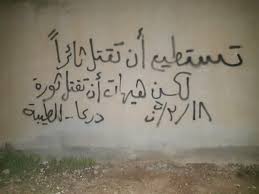 تستطيع أن تقتل ثائراً
لكن هيهات أن تقتل ثورة
درعا - الطيبة
١٨/٢/